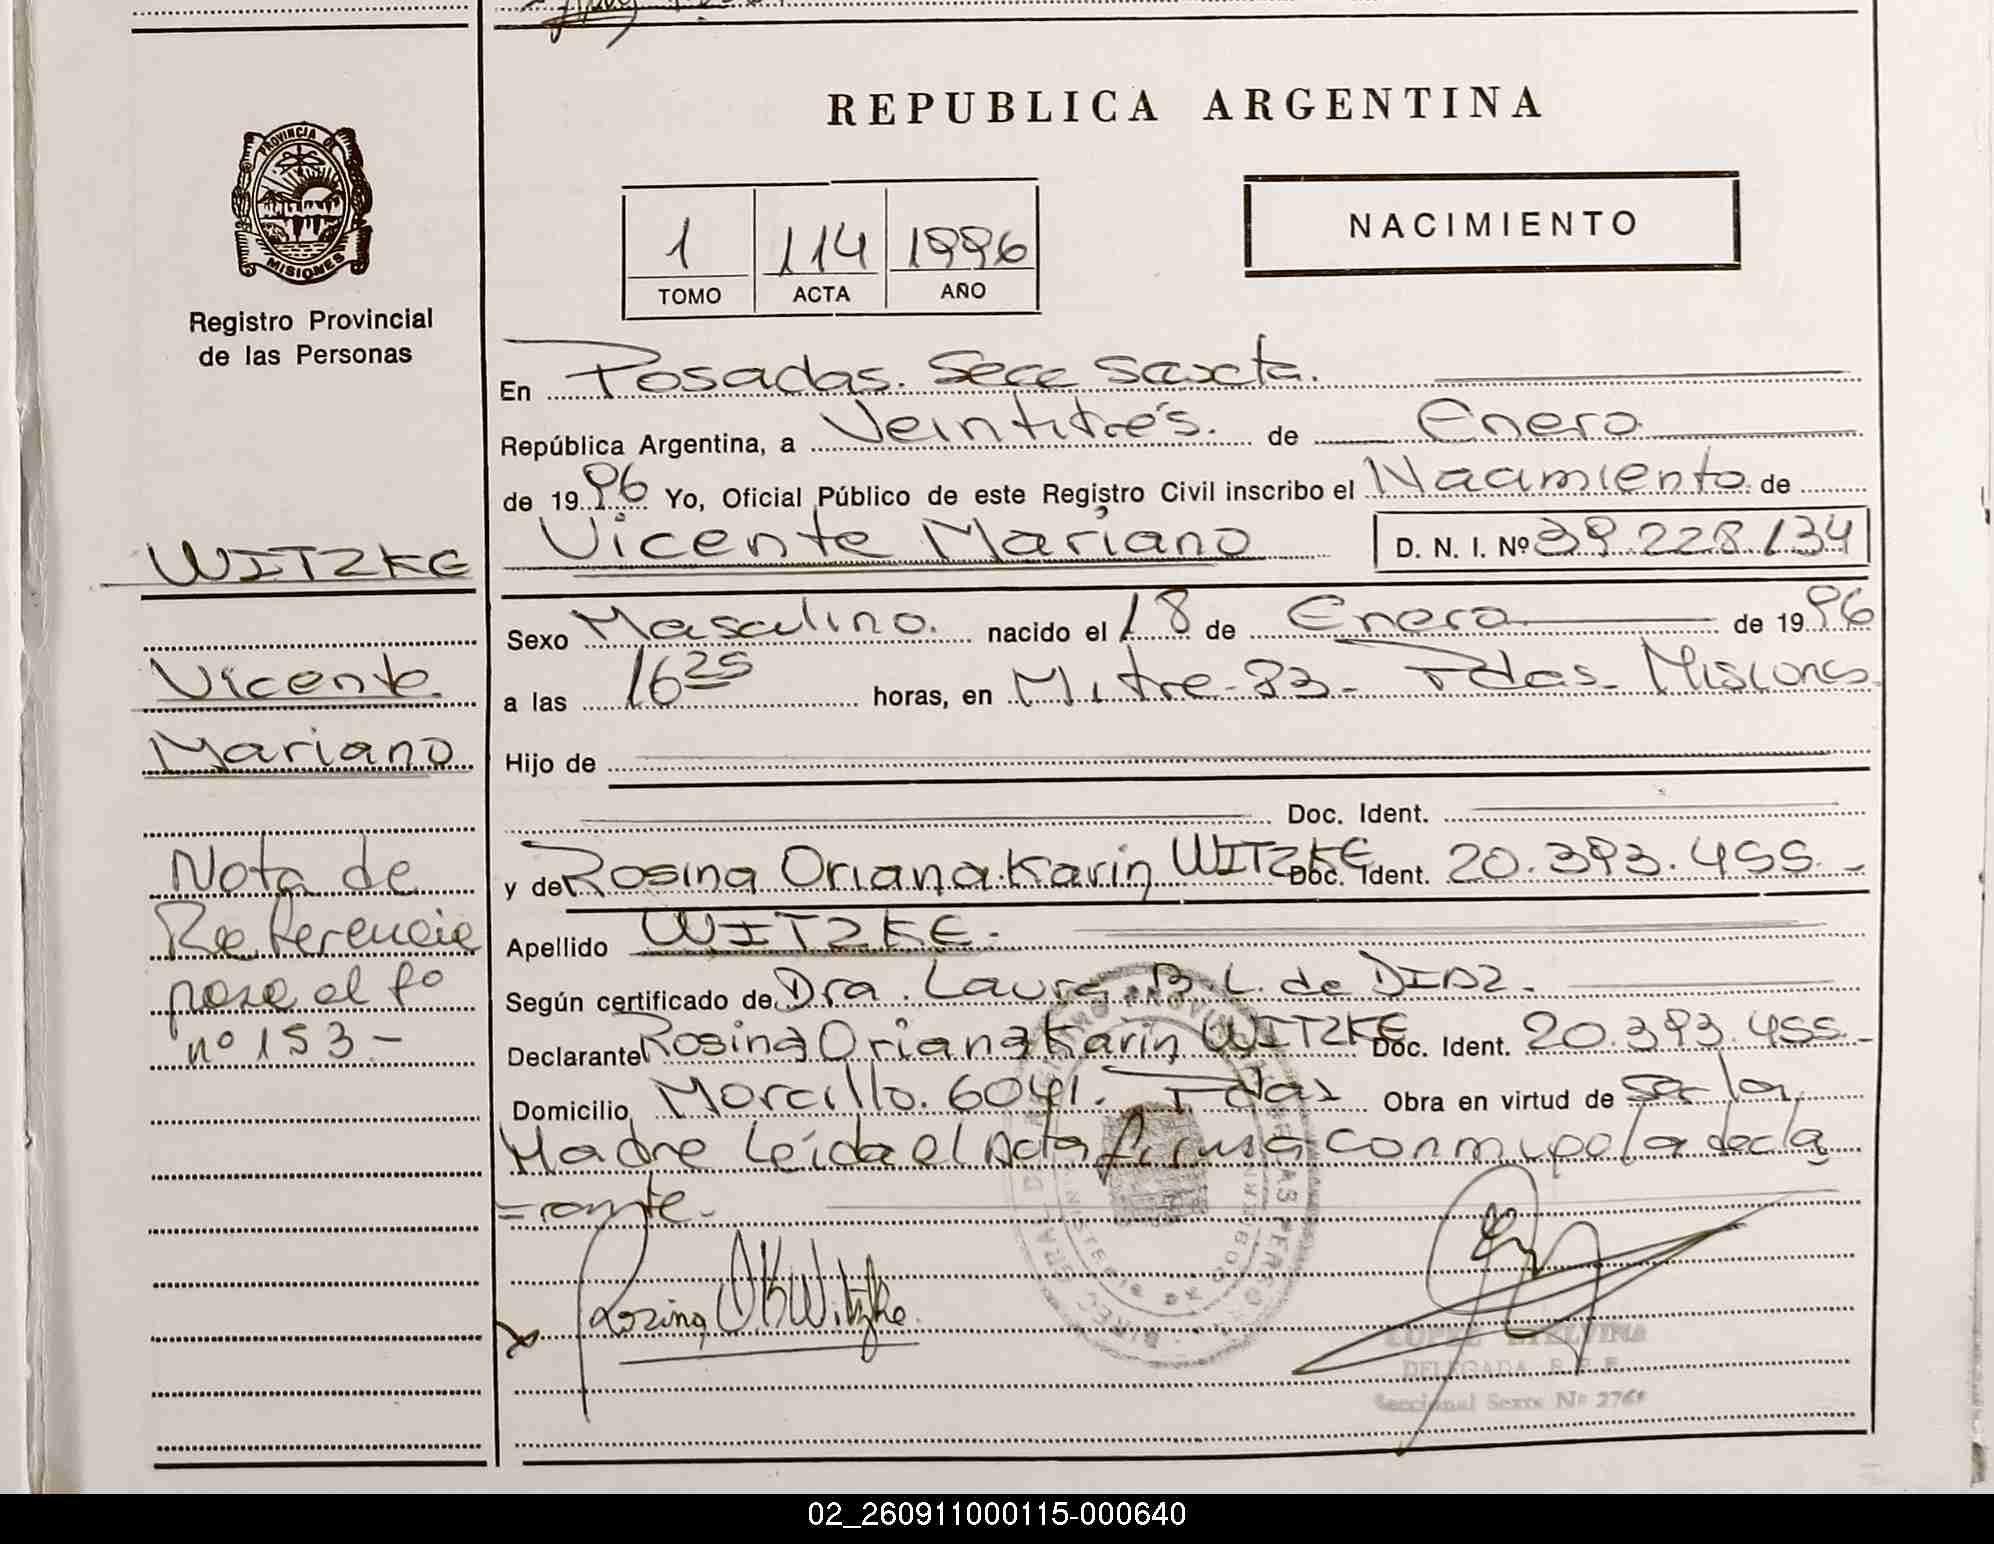 REPUBLICA ARGENTINA
PROVINCIA DE
MISIONES
Registro Provincial
de las Personas
1 114 1996
TOMO ACTA AÑO
NACIMIENTO
En Posadas. Secc Sexta.
República Argentina, a Veintitrés. de Enero
de 1996 Yo, Oficial Público de este Registro Civil inscribo el Nacimiento de
Vicente Mariano D. N. I. Nº 39.228.134
WITZKE
Vicente
Mariano
Nota de
Referencia
pase al fº
nº 153-
Sexo Masculino. nacido el 18 de Enero de 1996
a las 16 25 horas, en Mitre-83- Pdas- Misiones
Hijo de
Doc. Ident.
y de Rosina Oriana Karin WITZKE Doc. Ident. 20.393.455.-
Apellido WITZKE.-
Según certificado de Dra. Laura B. L. de DIAZ.-
Declarante Rosina Oriana Karin WITZKE Doc. Ident. 20.393.455.-
Domicilio Morcillo. 6041. Pdas Obra en virtud de ser la
Madre Leída el Acta firma conmigo la decla
=rante.-
Rosina O K Witzke
DELEGADA
Seccional Sexta Nº 276
02_260911000115-000640